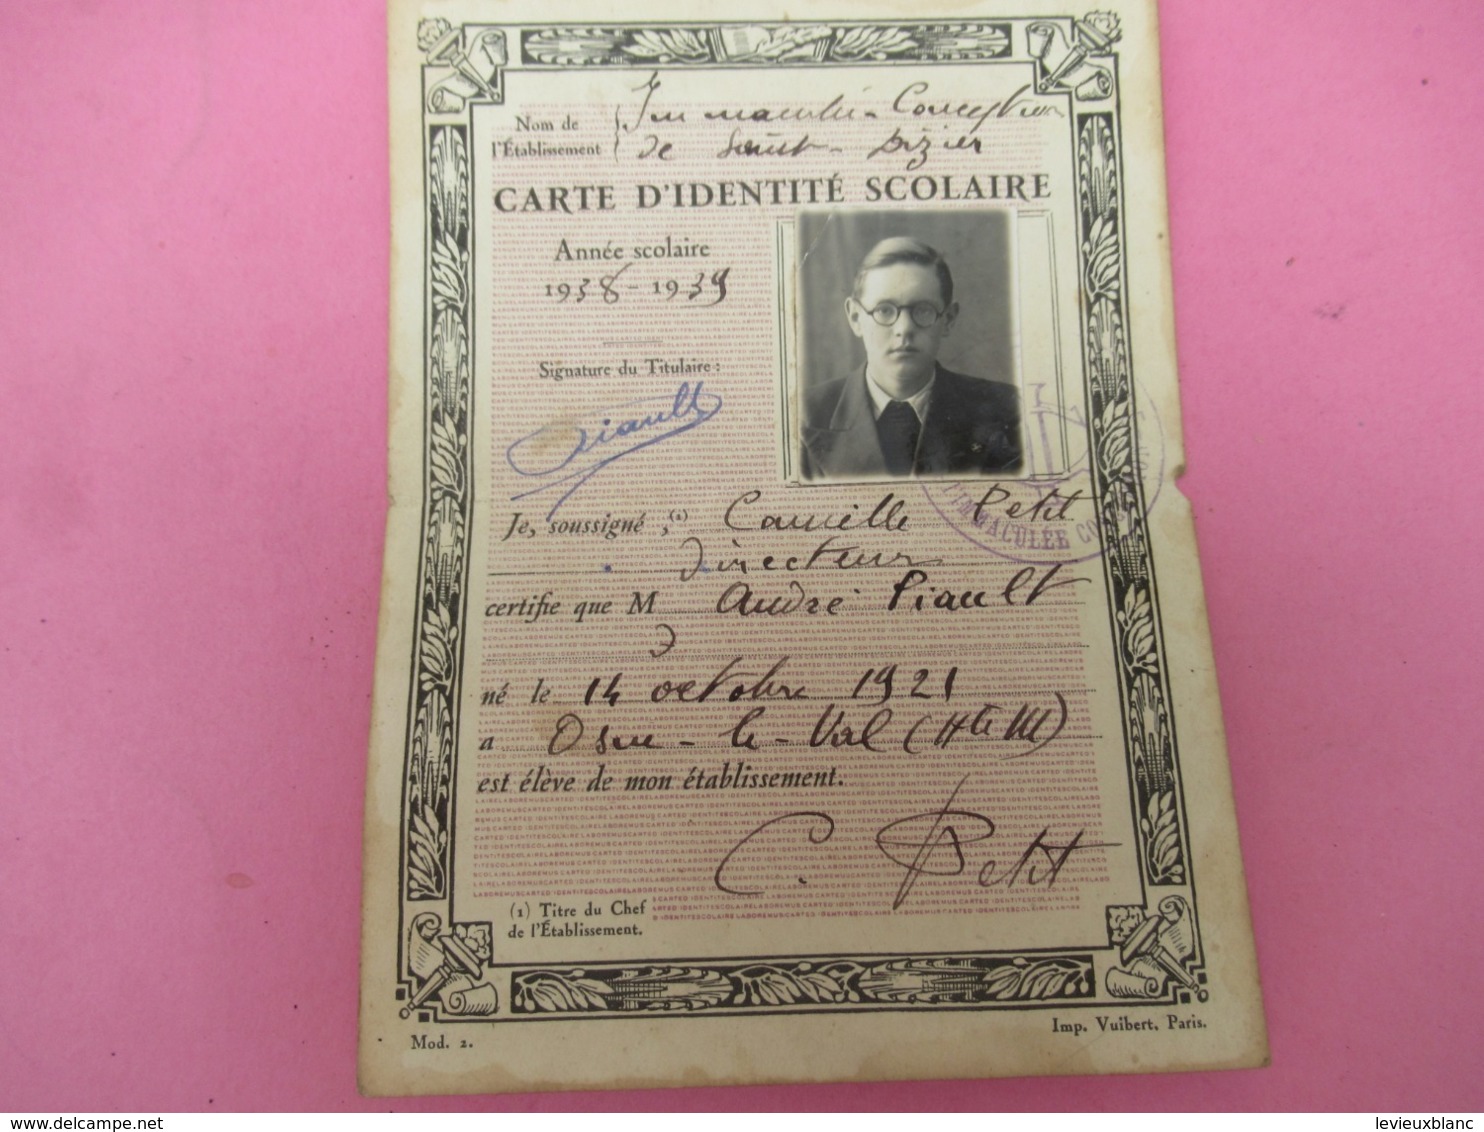 Nom de l'Établissement { Immaculée-Conception
de Saint-Dizier
CARTE D'IDENTITÉ SCOLAIRE
Année scolaire
1938-1939
Signature du Titulaire :
Piault
Je, soussigné,(1) Camille Petit
Directeur
certifie que M André Piault
né le 14 octobre 1921
a Osne-le-Val (Hte M)
est élève de mon établissement.
C. Petit
(1) Titre du Chef
de l'Établissement.
Mod. 2.
Imp. Vuibert, Paris.
IMMACULÉE
levieuxblanc
levieuxblanc.delcampe.net